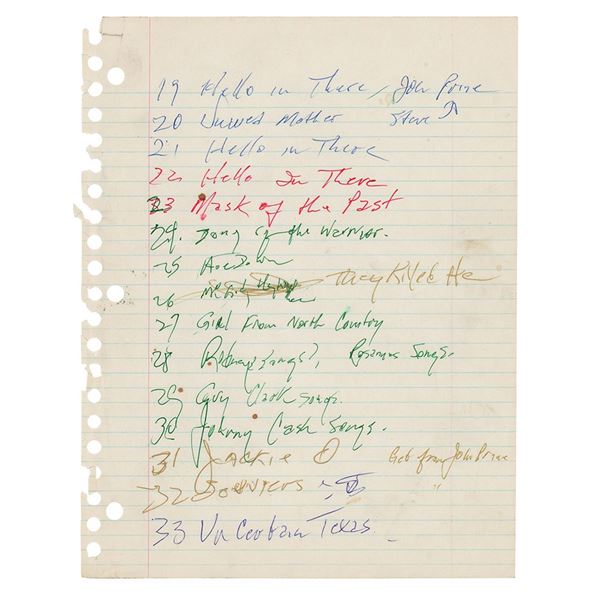 19 Hello in There, John Prine
20 Unwed Mother Steve
21 Hello in There
22 Hello In There
23 Mask of the Past
24. Song of the Warrior.
25
26 They Killed He
27 Girl From North Country
28 Rodney songs?, Rosannes Songs.
29 Guy Clark Songs.
30 Johnny Cash Songs.
31 Jackie O Get from John Prine
32 Souvenirs "
33 Uncertain Texas